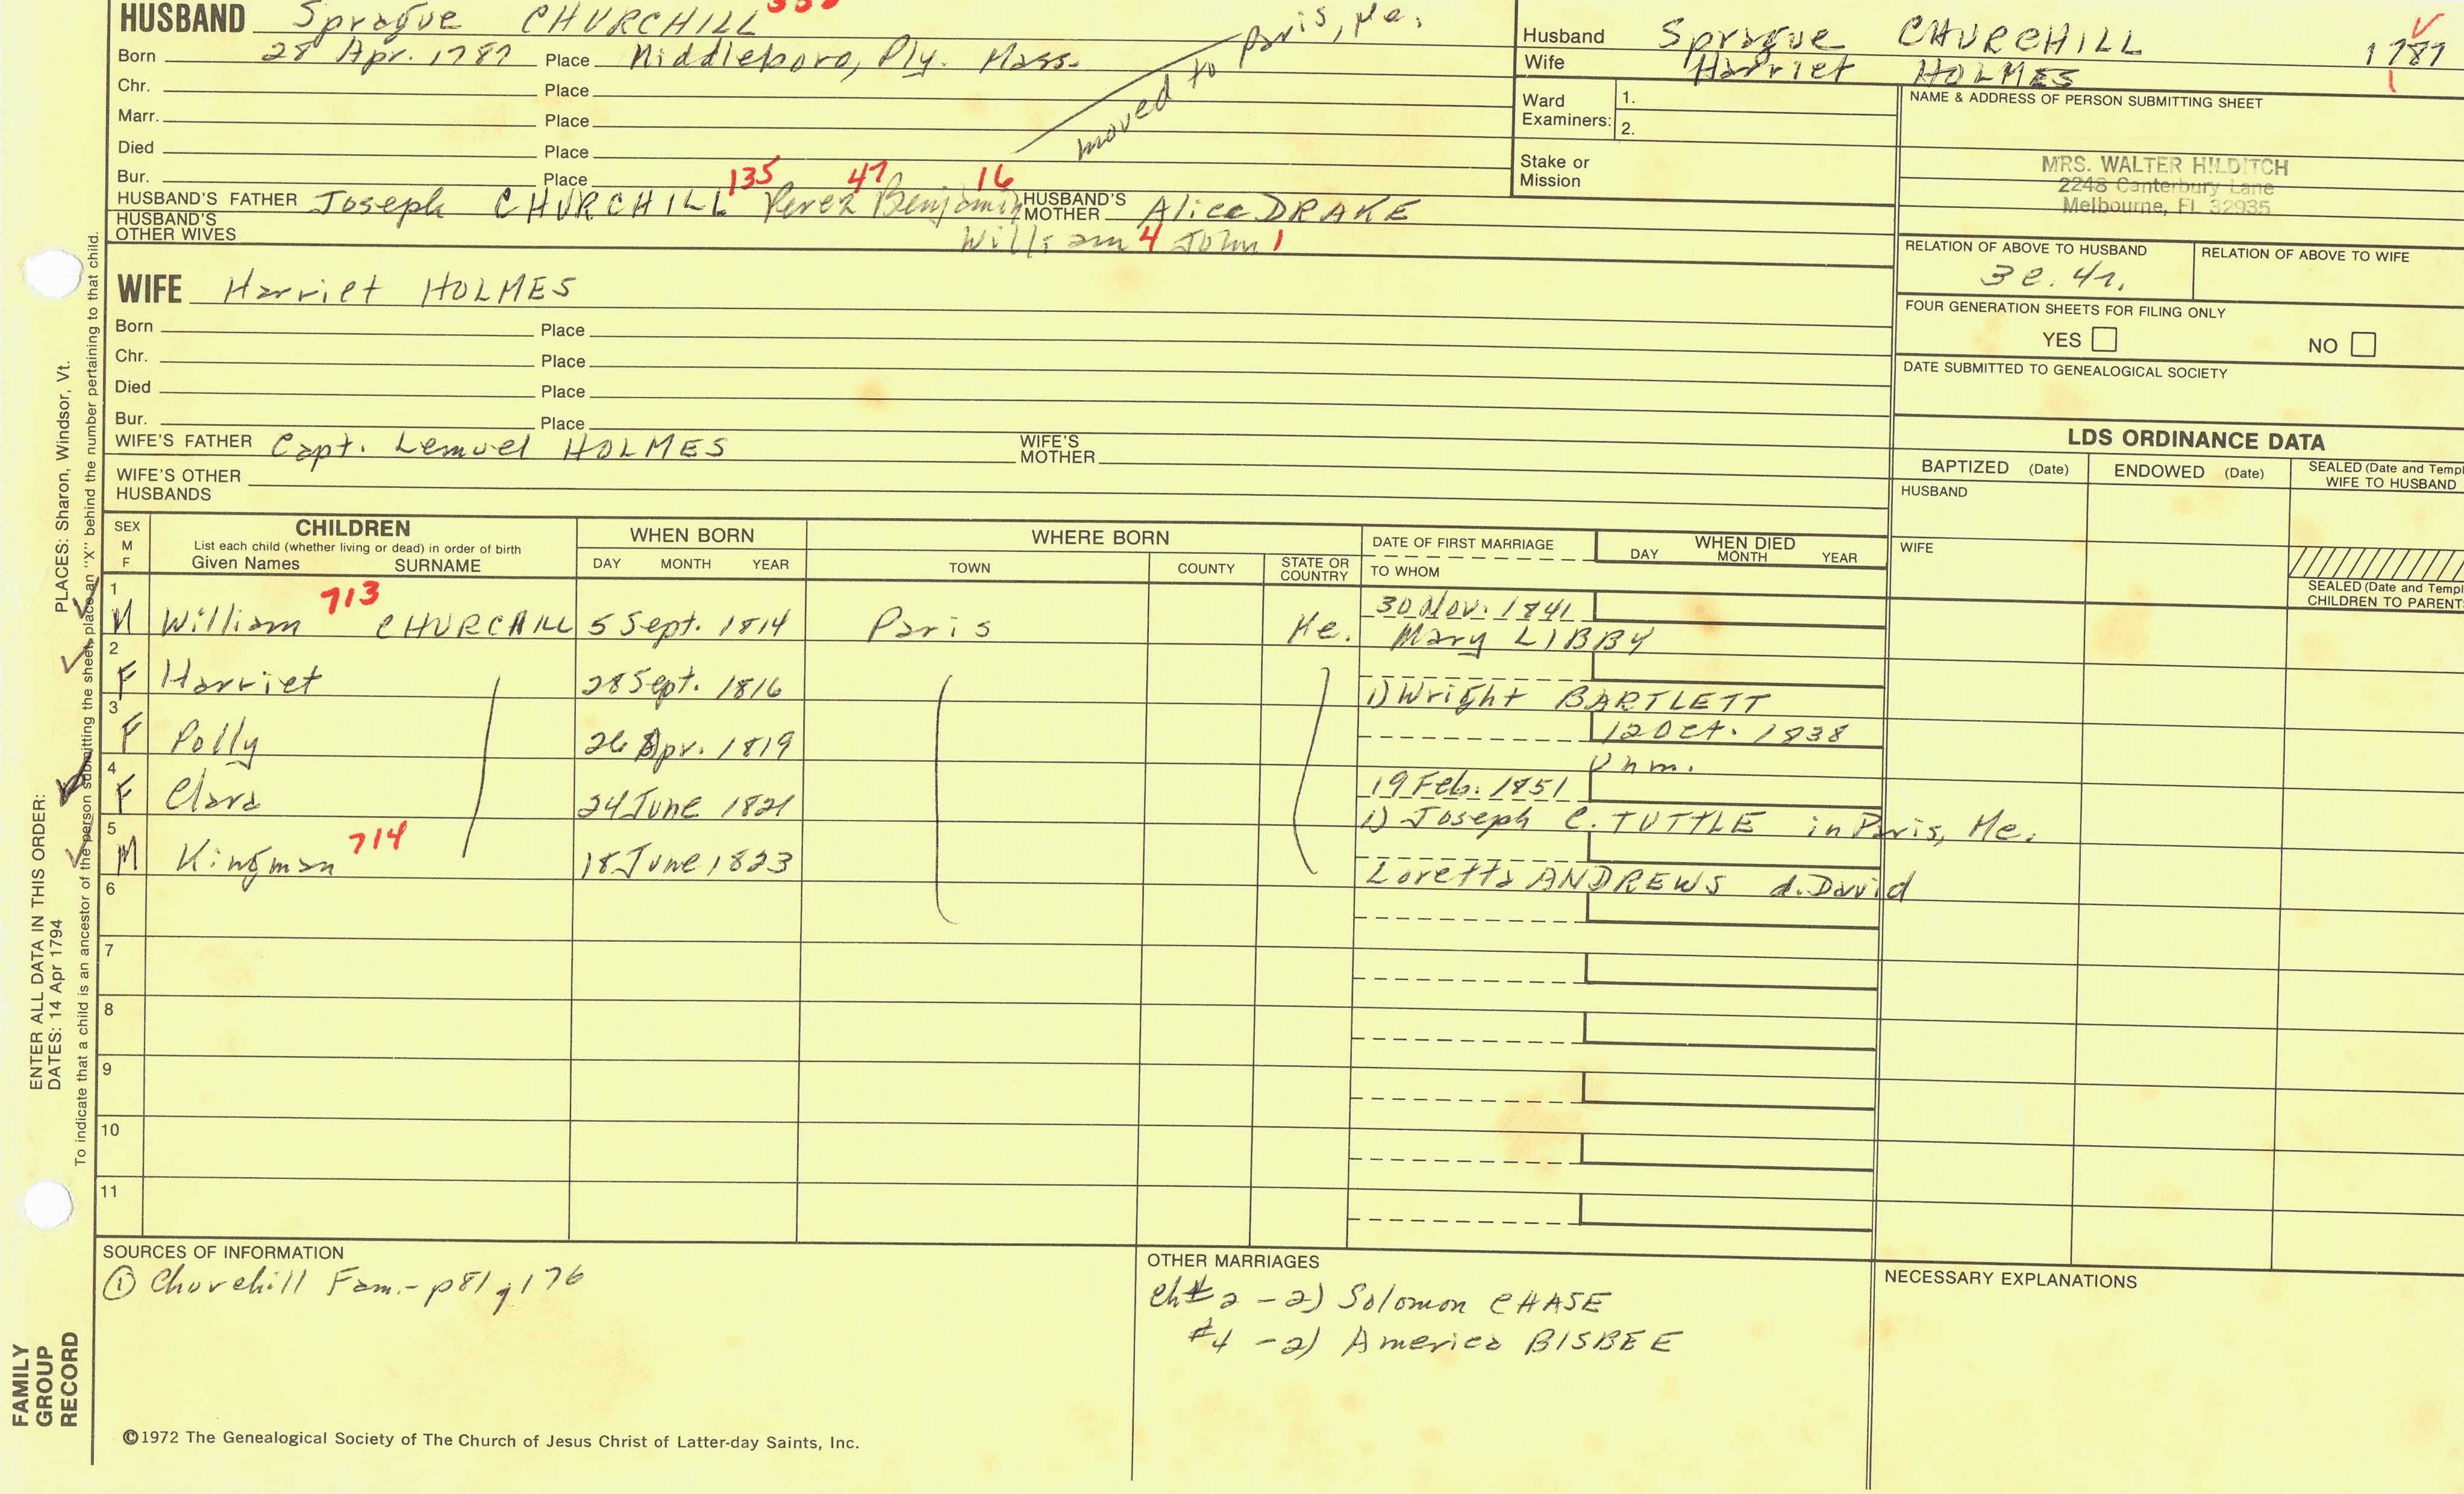 HUSBAND Sprague CHURCHILL
Born 28 Apr. 1787 Place Middleboro, Ply. Mass.
moved to Paris, Me.
Chr. Place
Marr. Place
Died Place
Bur. Place
135 47 16
HUSBAND'S FATHER Joseph CHURCHILL Perez Benjamin HUSBAND'S MOTHER Alice DRAKE
HUSBAND'S OTHER WIVES William 4 John 1
Husband Sprague CHURCHILL 1787
Wife Harriet HOLMES
Ward Examiners: 1.
2.
Stake or Mission
NAME & ADDRESS OF PERSON SUBMITTING SHEET
MRS. WALTER HILDITCH
2248 Canterbury Lane
Melbourne, FL 32935
RELATION OF ABOVE TO HUSBAND RELATION OF ABOVE TO WIFE
3c. 4r.
FOUR GENERATION SHEETS FOR FILING ONLY
YES NO
DATE SUBMITTED TO GENEALOGICAL SOCIETY
WIFE Harriet HOLMES
Born Place
Chr. Place
Died Place
Bur. Place
WIFE'S FATHER Capt. Lemuel HOLMES WIFE'S MOTHER
WIFE'S OTHER HUSBANDS
LDS ORDINANCE DATA
BAPTIZED (Date) ENDOWED (Date) SEALED (Date and Templ
WIFE TO HUSBAND
HUSBAND
WIFE
SEALED (Date and Templ
CHILDREN TO PARENT
SEX M F CHILDREN WHEN BORN WHERE BORN DATE OF FIRST MARRIAGE WHEN DIED
List each child (whether living or dead) in order of birth
Given Names SURNAME DAY MONTH YEAR TOWN COUNTY STATE OR COUNTRY TO WHOM DAY MONTH YEAR
1 713 30 Nov. 1841
M William CHURCHILL 5 Sept. 1814 Paris Me. Mary LIBBY
2
F Harriet 28 Sept. 1816 1) Wright BARTLETT
3 12 Oct. 1838
F Polly 26 Apr. 1819 Unm.
4 19 Feb. 1851
F Clara 24 June 1821 1) Joseph C. TUTTLE in Paris, Me.
5 714
M Kingman 18 June 1823 Loretta ANDREWS d. David
6
7
8
9
10
11
SOURCES OF INFORMATION
① Churchill Fam. - p81, 176
OTHER MARRIAGES
ch# 2 - 2) Solomon CHASE
#4 - 2) America BISBEE
NECESSARY EXPLANATIONS
©1972 The Genealogical Society of The Church of Jesus Christ of Latter-day Saints, Inc.
FAMILY GROUP RECORD
ENTER ALL DATA IN THIS ORDER:
DATES: 14 Apr 1794 PLACES: Sharon, Windsor, Vt.
To indicate that a child is an ancestor of the person submitting the sheet, place an "X" behind the number pertaining to that child.